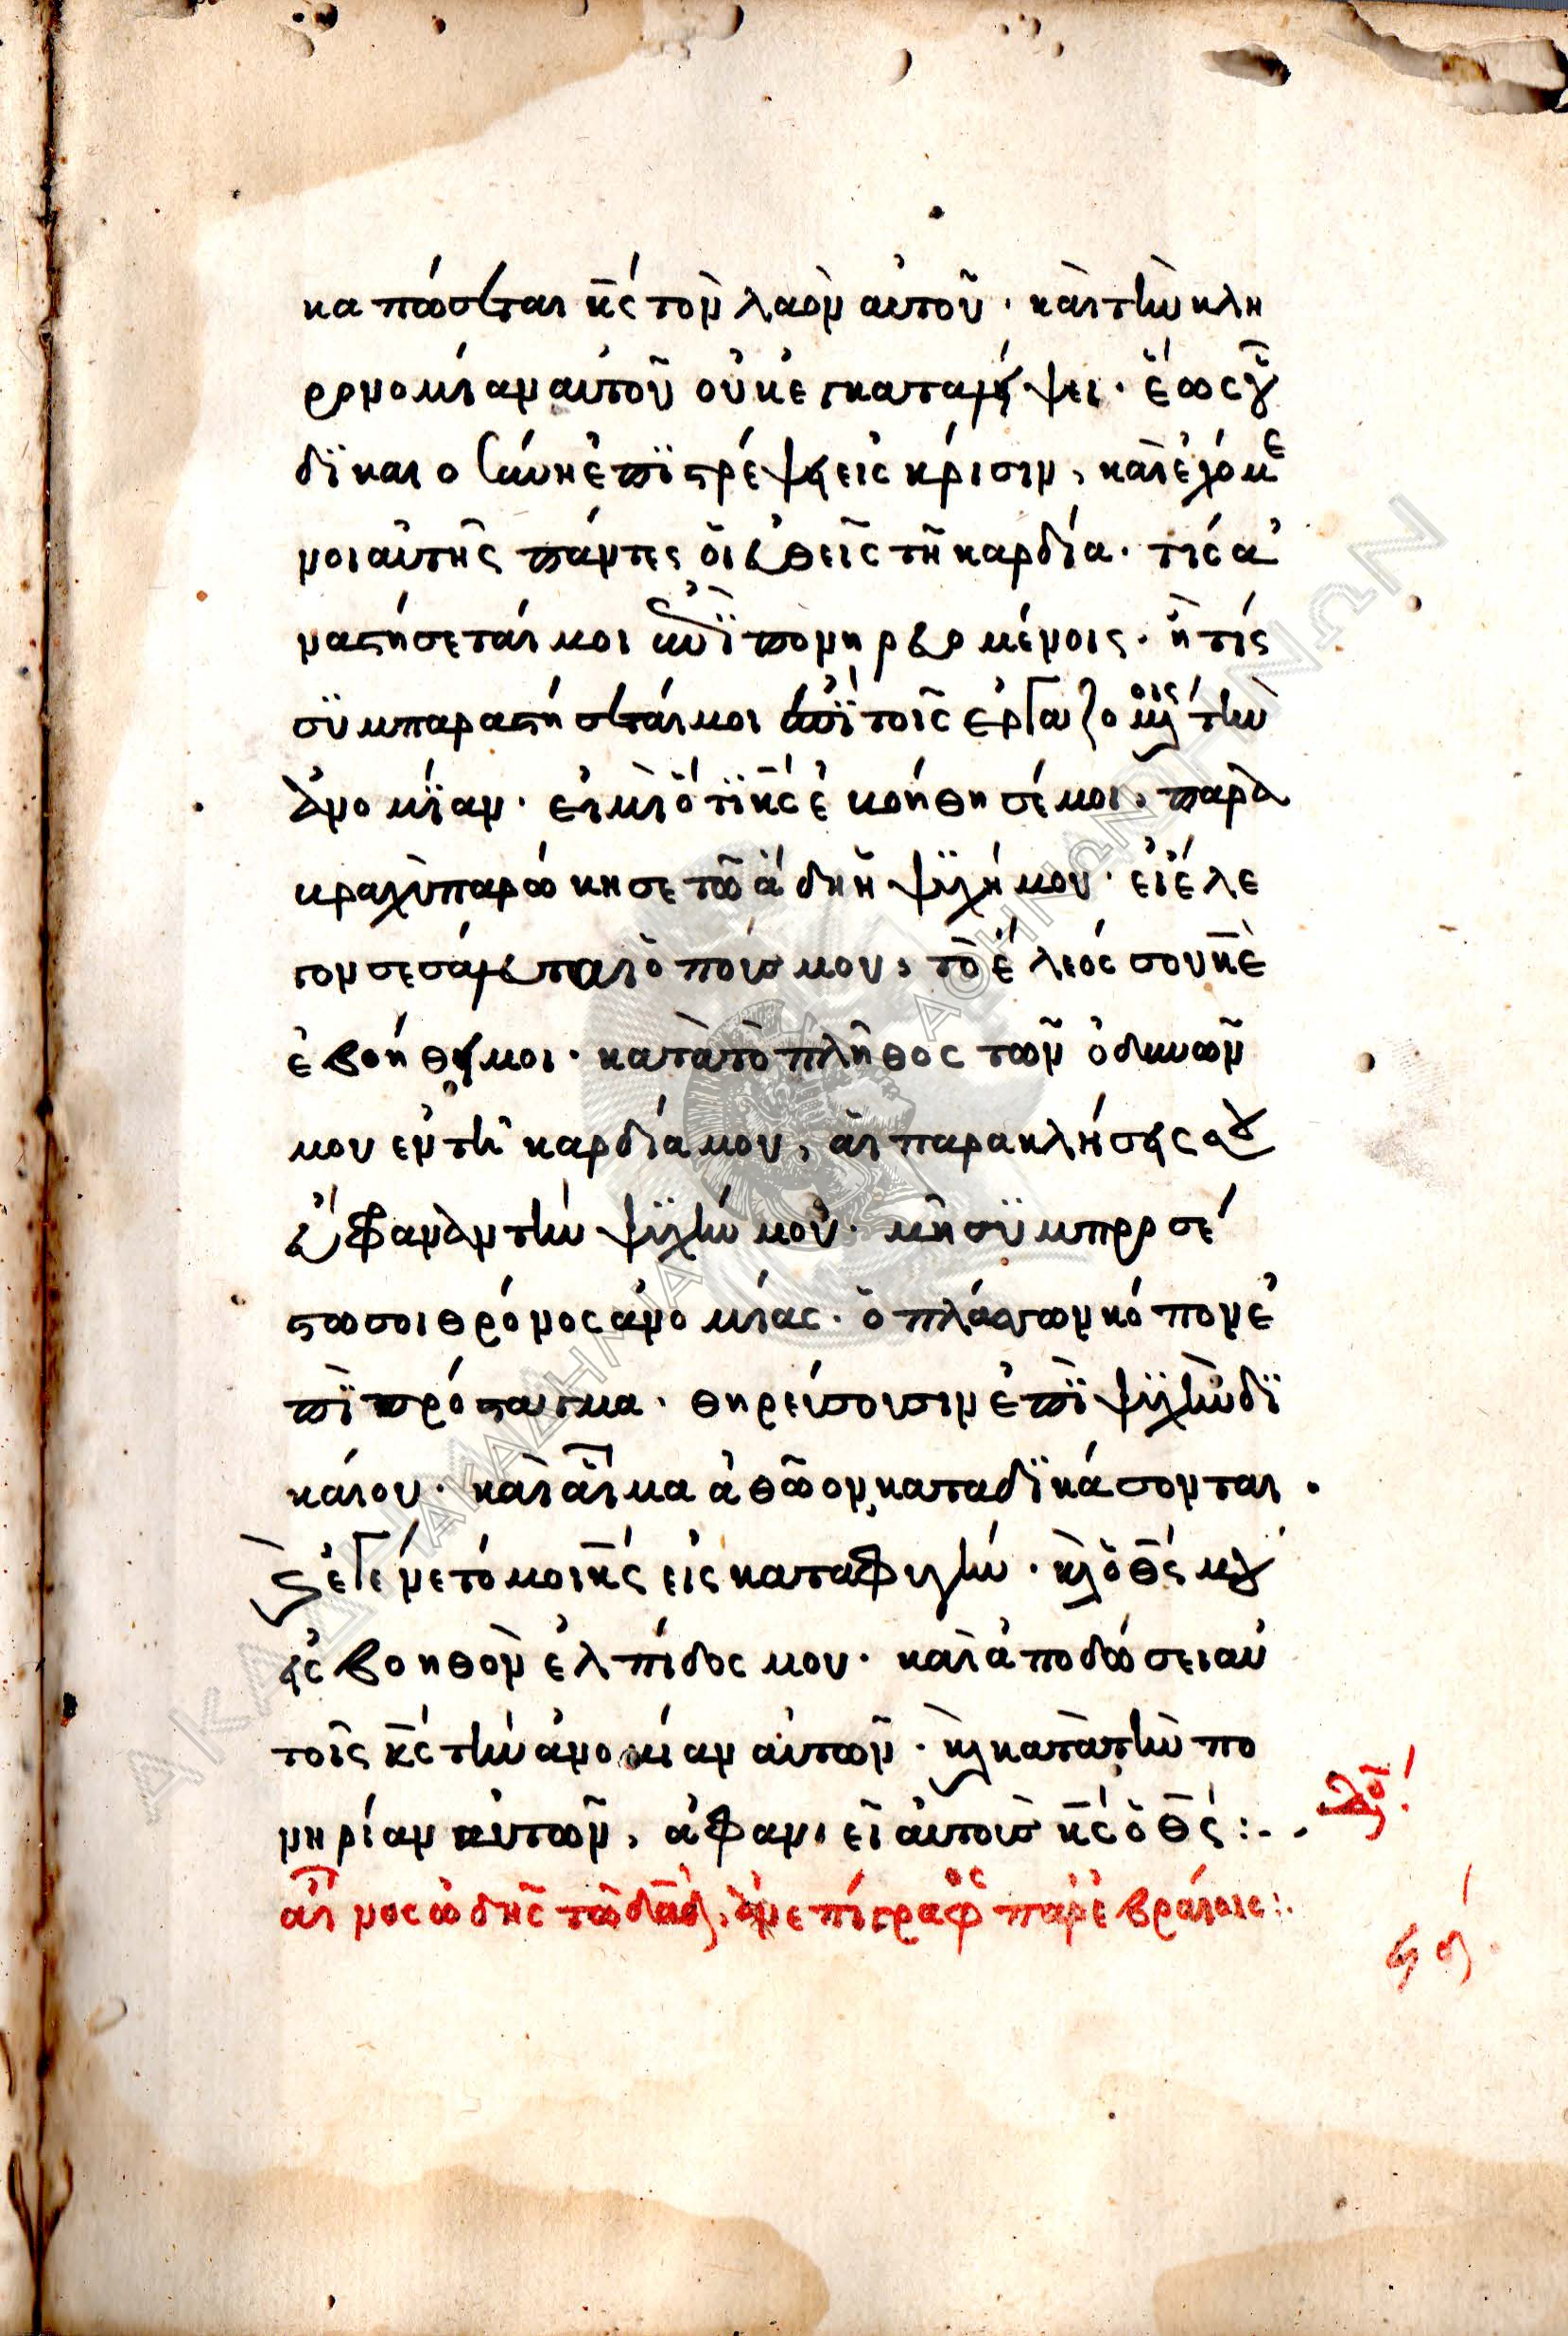 κα πώσεται κ̅ς́ τὸν λαὸν αὐτοῦ · καὶ τὴν κλη
ρονομίαν αυτοῦ οὐκ ἐγκαταλήψει · ἕως οὗ
δϊκαιοσύνη ἐπϊστρέψει εἰς κρίσιν, καὶ ἐχόμε
νοι αὐτῆς πάντες ὅι εὐθεῖς τῆ καρδία · τίς ἀ
ναστήσεταί μοι ἐπῒ πονηρευομένοις · ἢ τίς
σϋμπαραστήσεταί μοι ἐπῒ τοῖς ἐργαζομένοις τὴν
ἀνομΐαν · εἰ μὴ ὅτϊ κ̅ς́ ἐβοήθησέ μοι, παρὰ
βραχὺ παρώκησε τῶ ἅδη ἡ ψϋχή μου · εἰ ἔλε
γον σεσάλευται ὁ πούς μου, τὸ ἔλεός σου κ̅ὲ
ἐβοήθει μοι · κατὰ τὸ πλῆθος τῶν ὀδυνῶν
μου ἐν τῆ καρδία μου, ἁι παρακλήσεις σου
εὔφραναν τὴν ψϋχήν μου · μὴ σϋμπροσέ
στω σοι θρόνος ἀνομίας · ὁ πλάσσων κόπον ἐ
πῒ πρόσταγμα · θηρεύσουσιν ἐπῒ ψϋχὴν δϊ
καίου · καὶ αἷμα ἀθῶον καταδϊκάσονται ·
Καὶ ἐγένετό μοι κ̅ς́ εἰς καταφυγήν · καὶ ὁ θ̅ς́ μου
εἰς βοηθὸν ἐλπίδος μου · καὶ ἀποδώσει αὐ
τοῖς κ̅ς́ τὴν ἀνομίαν αὐτῶν · καὶ κατὰ τὴν πο
νηρίαν αὐτῶν, ἀφανιεῖ αὐτοὺς κ̅ς́ ὁ θ̅ς́ :- -
αἶνος ὠδῆς τῶ δα̅δ, ἀνεπίγραφος παρ' ἑβραίοις :·